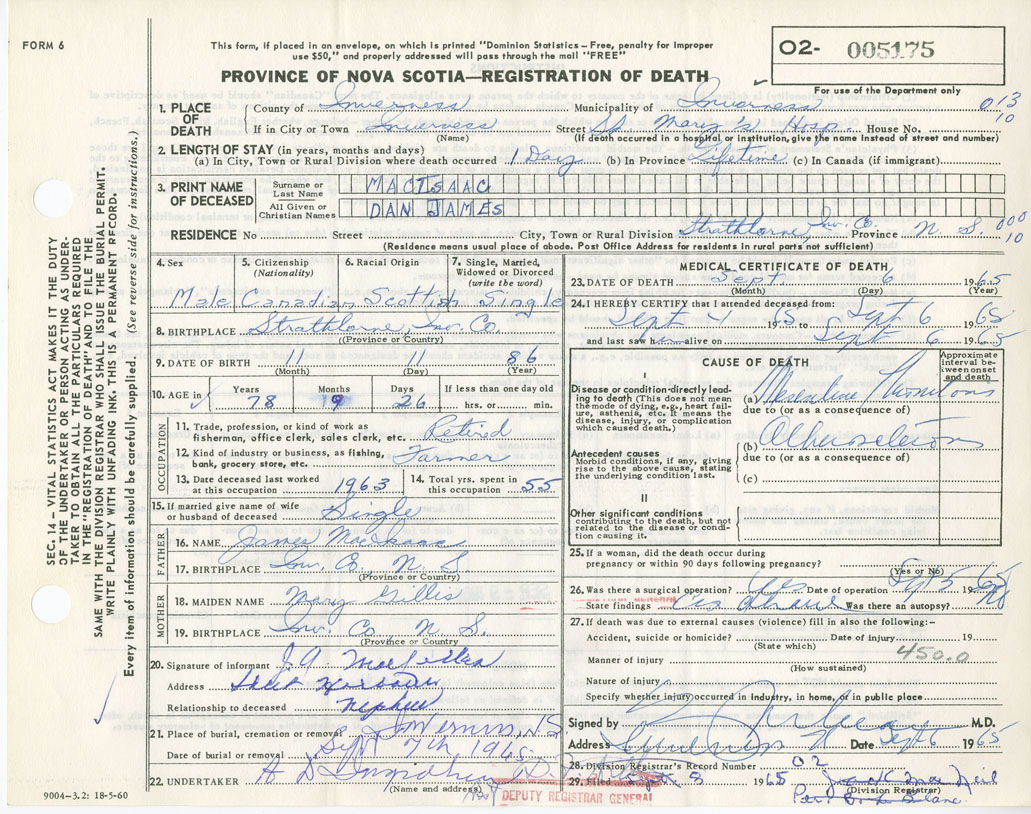 FORM 6
This form, if placed in an envelope, on which is printed "Dominion Statistics – Free, penalty for improper
use $50," and properly addressed will pass through the mail "FREE"
O2- 005175
PROVINCE OF NOVA SCOTIA—REGISTRATION OF DEATH
For use of the Department only
1. PLACE OF DEATH
County of Inverness Municipality of Inverness 013
If in City or Town Inverness Street St Mary's Hosp. House No. 10
(Name) (If death occurred in a hospital or institution, give the name instead of street and number)
2. LENGTH OF STAY (in years, months and days)
(a) In City, Town or Rural Division where death occurred 1 Day (b) In Province Lifetime (c) In Canada (if immigrant)
3. PRINT NAME OF DECEASED
Surname or Last Name MACISAAC
All Given or Christian Names DAN JAMES
RESIDENCE No Street City, Town or Rural Division Strathlorne, Inv. Co. Province N. S. 000 10
(Residence means usual place of abode. Post Office Address for residents in rural parts not sufficient)
4. Sex
5. Citizenship (Nationality)
6. Racial Origin
7. Single, Married, Widowed or Divorced (write the word)
Male Canadian Scottish Single
8. BIRTHPLACE Strathlorne, Inv. Co.
(Province or Country)
9. DATE OF BIRTH 11 11 86
(Month) (Day) (Year)
10. AGE in
Years Months Days If less than one day old
78 9 26 hrs. or min.
OCCUPATION
11. Trade, profession, or kind of work as
fisherman, office clerk, sales clerk, etc. Retired
12. Kind of industry or business, as fishing,
bank, grocery store, etc. Farmer
13. Date deceased last worked
at this occupation 1963
14. Total yrs. spent in
this occupation 55
15. If married give name of wife
or husband of deceased Single
FATHER
16. NAME James MacIsaac
17. BIRTHPLACE Inv. Co. N. S.
(Province or Country)
MOTHER
18. MAIDEN NAME Mary Gillis
19. BIRTHPLACE Inv. Co N. S.
(Province or Country)
20. Signature of informant J. A
Address
Relationship to deceased Nephew
21. Place of burial, cremation or removal
Date of burial or removal Sept 7th 1965
22. UNDERTAKER
(Name and address)
DEPUTY REGISTRAR GENERAL
9004–3.2: 18-5-60
MEDICAL CERTIFICATE OF DEATH
23. DATE OF DEATH Sept. 6 1965
(Month) (Day) (Year)
24. I HEREBY CERTIFY that I attended deceased from:
Sept 1965 to Sept 6 1965
and last saw him alive on Sept 6 1965
CAUSE OF DEATH
Approximate interval between onset and death
I
Disease or condition directly leading to death (This does not mean the mode of dying, e.g., heart failure, asthenia, etc. It means the disease, injury, or complication which caused death.)
(a)
due to (or as a consequence of)
Antecedent causes
Morbid conditions, if any, giving rise to the above cause, stating the underlying condition last.
(b)
due to (or as a consequence of)
(c)
II
Other significant conditions
contributing to the death, but not related to the disease or condition causing it.
25. If a woman, did the death occur during
pregnancy or within 90 days following pregnancy?
(Yes or No)
26. Was there a surgical operation? Yes Date of operation Sept 5 1965
State findings Was there an autopsy? No
27. If death was due to external causes (violence) fill in also the following:–
Accident, suicide or homicide? Date of injury 19
(State which)
Manner of injury 450.0
(How sustained)
Nature of injury
Specify whether injury occurred in industry, in home, or in public place
Signed by M.D.
Address Date Sept 6 1965
28. Division Registrar's Record Number 02
29. Filed 1965
(Division Registrar)
SEC. 14 – VITAL STATISTICS ACT MAKES IT THE DUTY
OF THE UNDERTAKER OR PERSON ACTING AS UNDER-
TAKER TO OBTAIN ALL THE PARTICULARS REQUIRED
IN THE "REGISTRATION OF DEATH" AND TO FILE THE
SAME WITH THE DIVISION REGISTRAR WHO SHALL ISSUE THE BURIAL PERMIT.
WRITE PLAINLY WITH UNFADING INK. THIS IS A PERMANENT RECORD.
Every item of information should be carefully supplied. (See reverse side for instructions.)